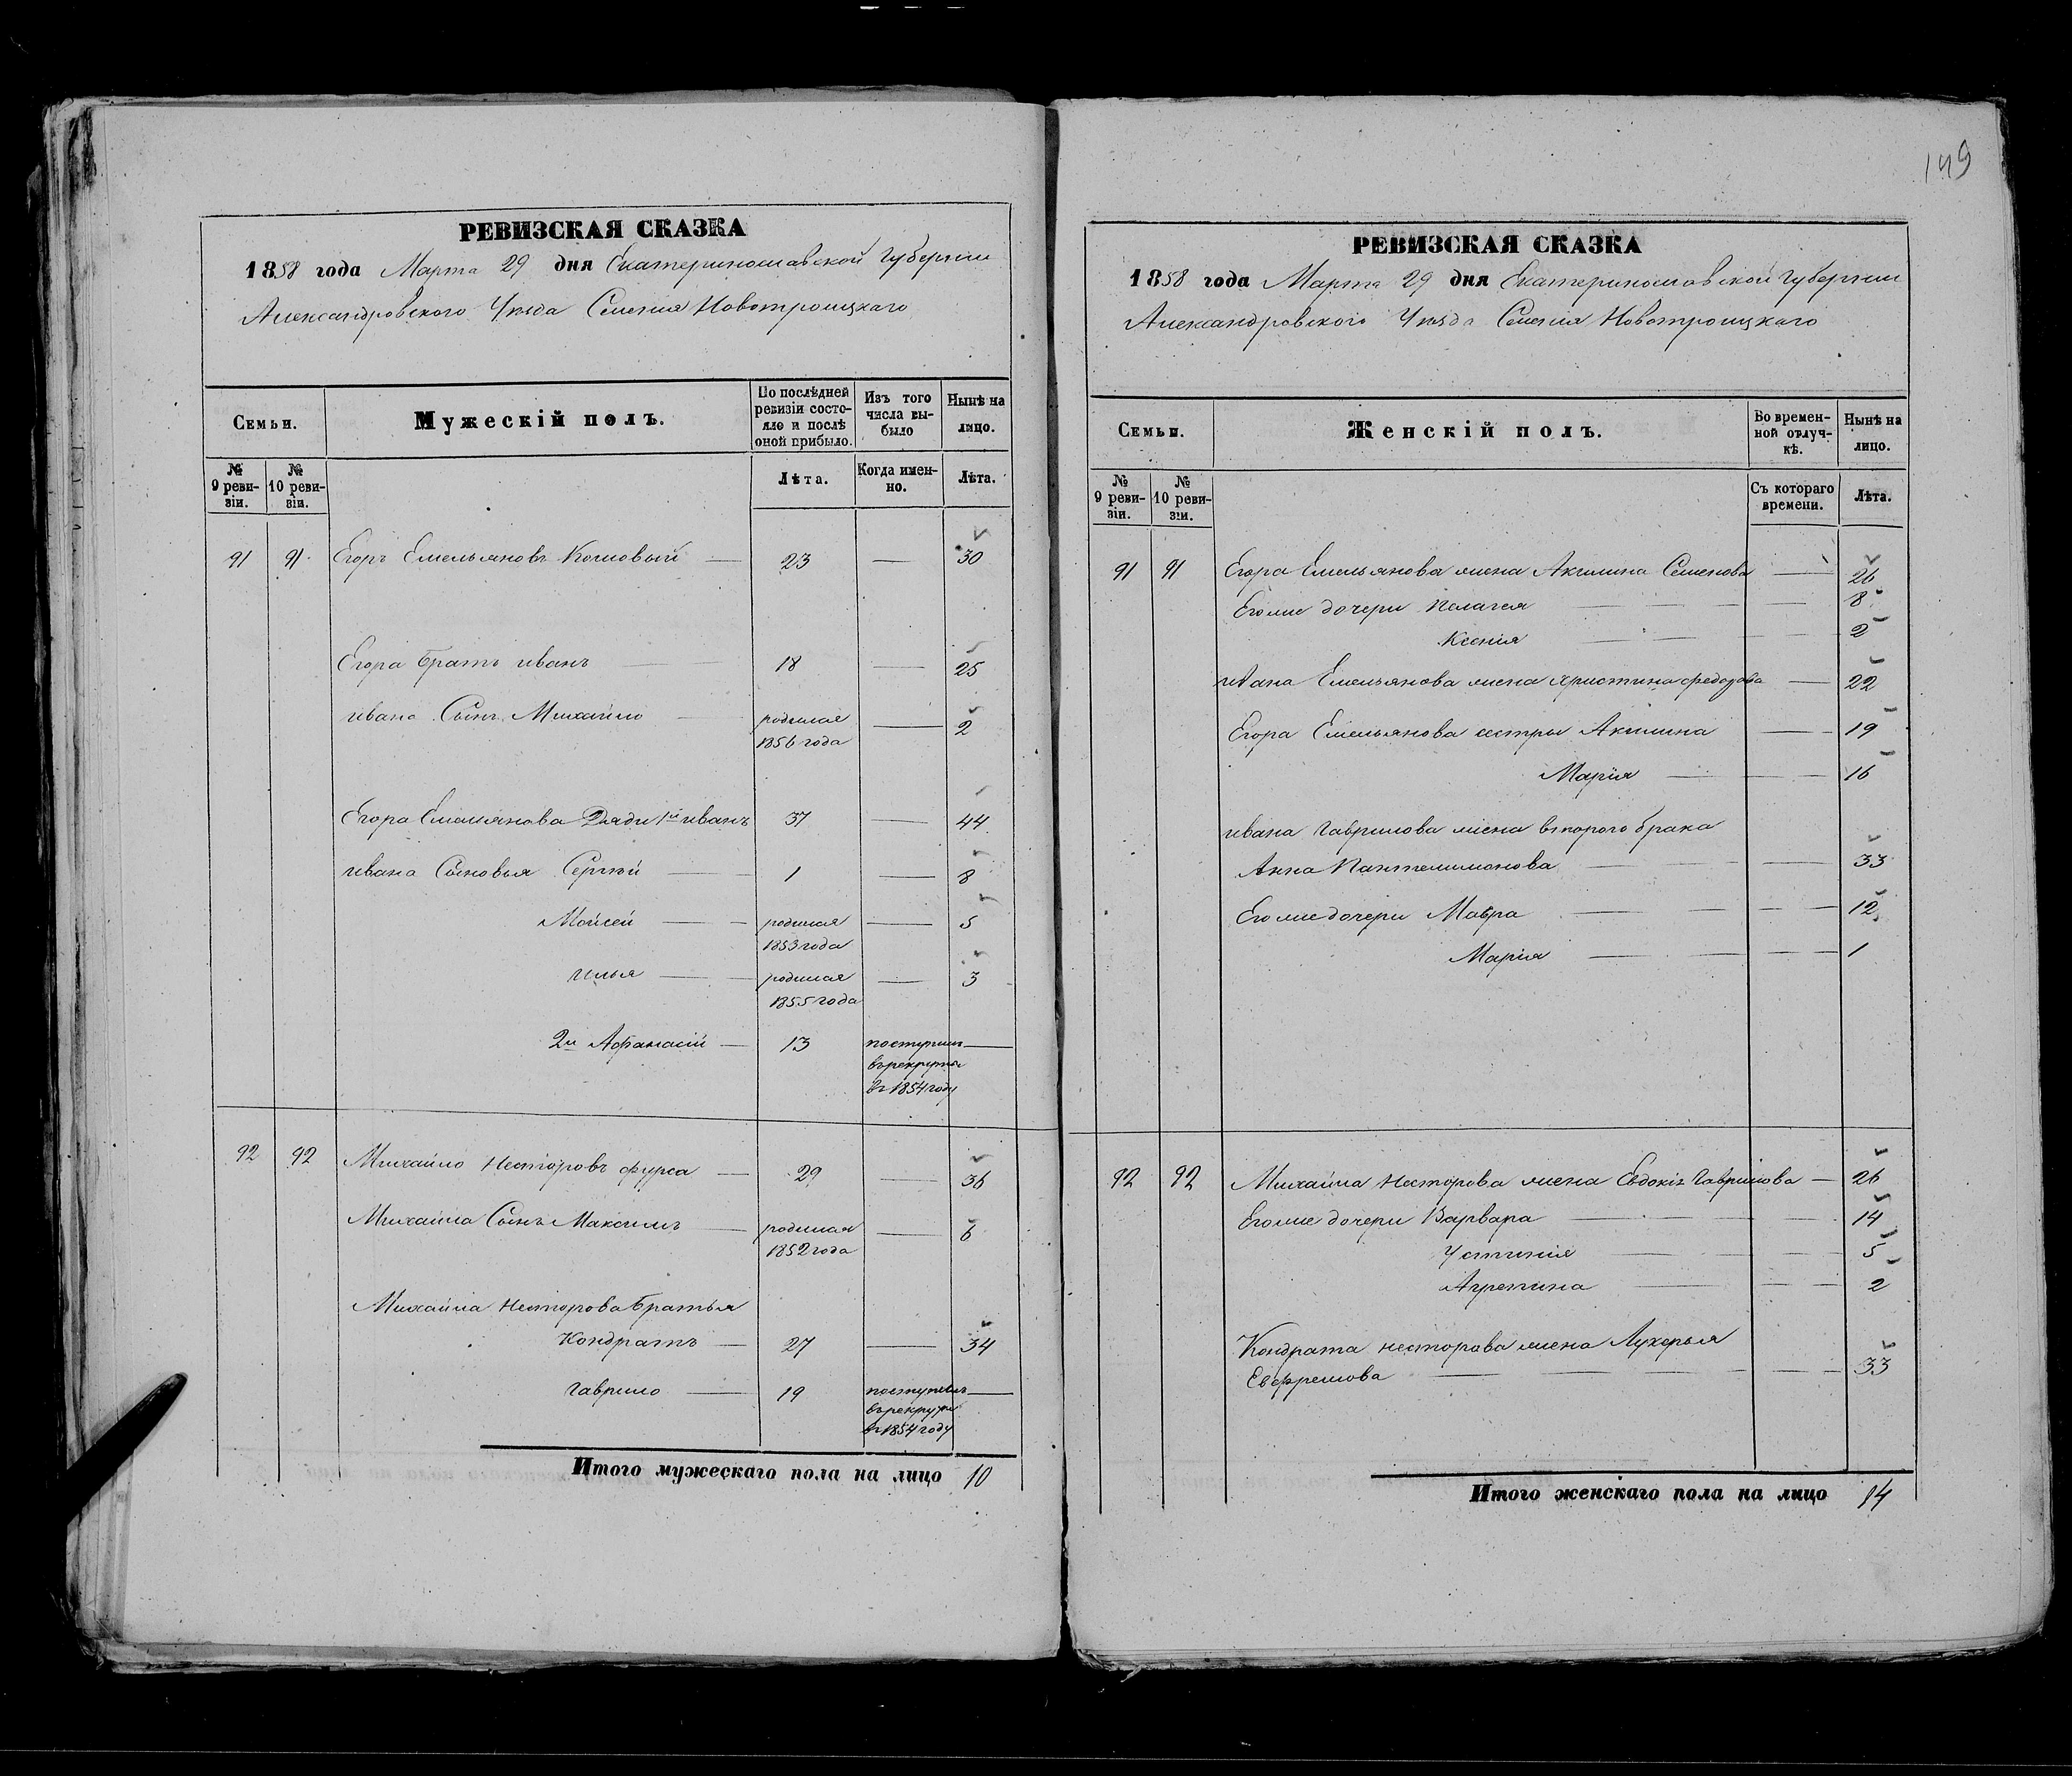 149
РЕВИЗСКАЯ СКАЗКА
1858 года Марта 29 дня Екатеринославской Губернии
Александровского Уѣзда Селенія Новотроицкаго
Семьи.
Мужескій полъ.
По послѣдней ревизіи состояло и послѣ оной прибыло.
Изъ того числа выбыло
Нынѣ на лицо.
№ 9 ревизіи.
№ 10 ревизіи.
Лѣта.
Когда именно.
Лѣта.
91 91 Егоръ Емельяновъ 23 — 30
Егора братъ иванъ — 18 — 25
ивана Сынъ Михайло — родился 1856 года — 2
Егора Емельянова Дяди 1й иванъ 37 — 44
ивана Сыновья Сергѣй — 1 — 8
Мойсей — родился 1853 года — 5
илья — родился 1855 года — 3
2й Афанасій — 13 поступилъ въ рекруты въ 1854 году —
92 92 Михайло Несторовъ фурса — 29 — 36
Михайла Сынъ Максимъ — родился 1852 года — 6
Михайла Несторова Братья
Кондратъ — 27 — 34
гаврило — 19 поступилъ въ рекруты въ 1854 году —
Итого мужескаго пола на лицо 10
РЕВИЗСКАЯ СКАЗКА
1858 года Марта 29 дня Екатеринославской Губернии
Александровского Уѣзда Селенія Новотроицкаго
Семьи.
Женскій полъ.
Во временной отлучкѣ.
Нынѣ на лицо.
№ 9 ревизіи.
№ 10 ревизіи.
Съ котораго времени.
Лѣта.
91 91 Егора Емельянова жена Акилина Семенова — 26
Егоже дочери Пелагея — 8
Ксенія — 2
ивана Емельянова жена христина федорова — 22
Егора Емельянова сестры Акилина — 19
Марія — 16
ивана Гаврилова жена втораго брака
Анна Пантелимонова — 33
Егоже дочери Мавра — 12
Марія — 1
92 92 Михайла Несторова жена Евдокія Гаврилова — 26
Егоже дочери Варвара — 14
Устинія — 5
Агрепина — 2
Кондрата несторова жена Лукерья
Евфремова — 33
Итого женскаго пола на лицо 14